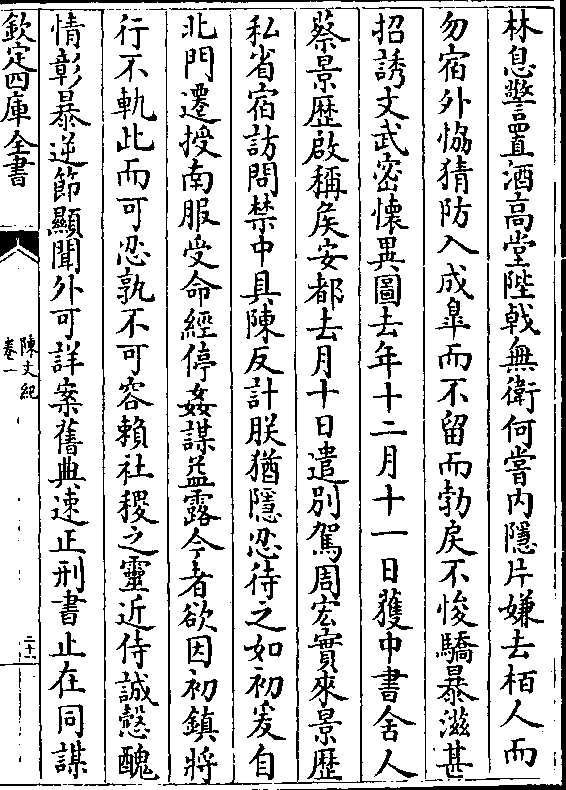 林息警置酒高堂陛戟無衛何嘗内隱片嫌去栢人而
勿宿外恊猜防入成臯而不留而勃戾不悛驕暴滋甚
招誘文武密懷異圖去年十二月十一日獲中書舍人
蔡景歴啟稱矦安都去月十日遣别駕周宏實來景歴
私省宿訪問禁中具陳反計朕猶隱忍待之如初爰自
北門遷授南服受命經停姦謀益露今者欲因初鎮將
行不軌此而可忍孰不可容賴社稷之靈近侍誠慤醜
情彰暴逆節顯聞外可詳案舊典速正刑書止在同謀
欽定四庫全書
陳文紀
卷一
二十